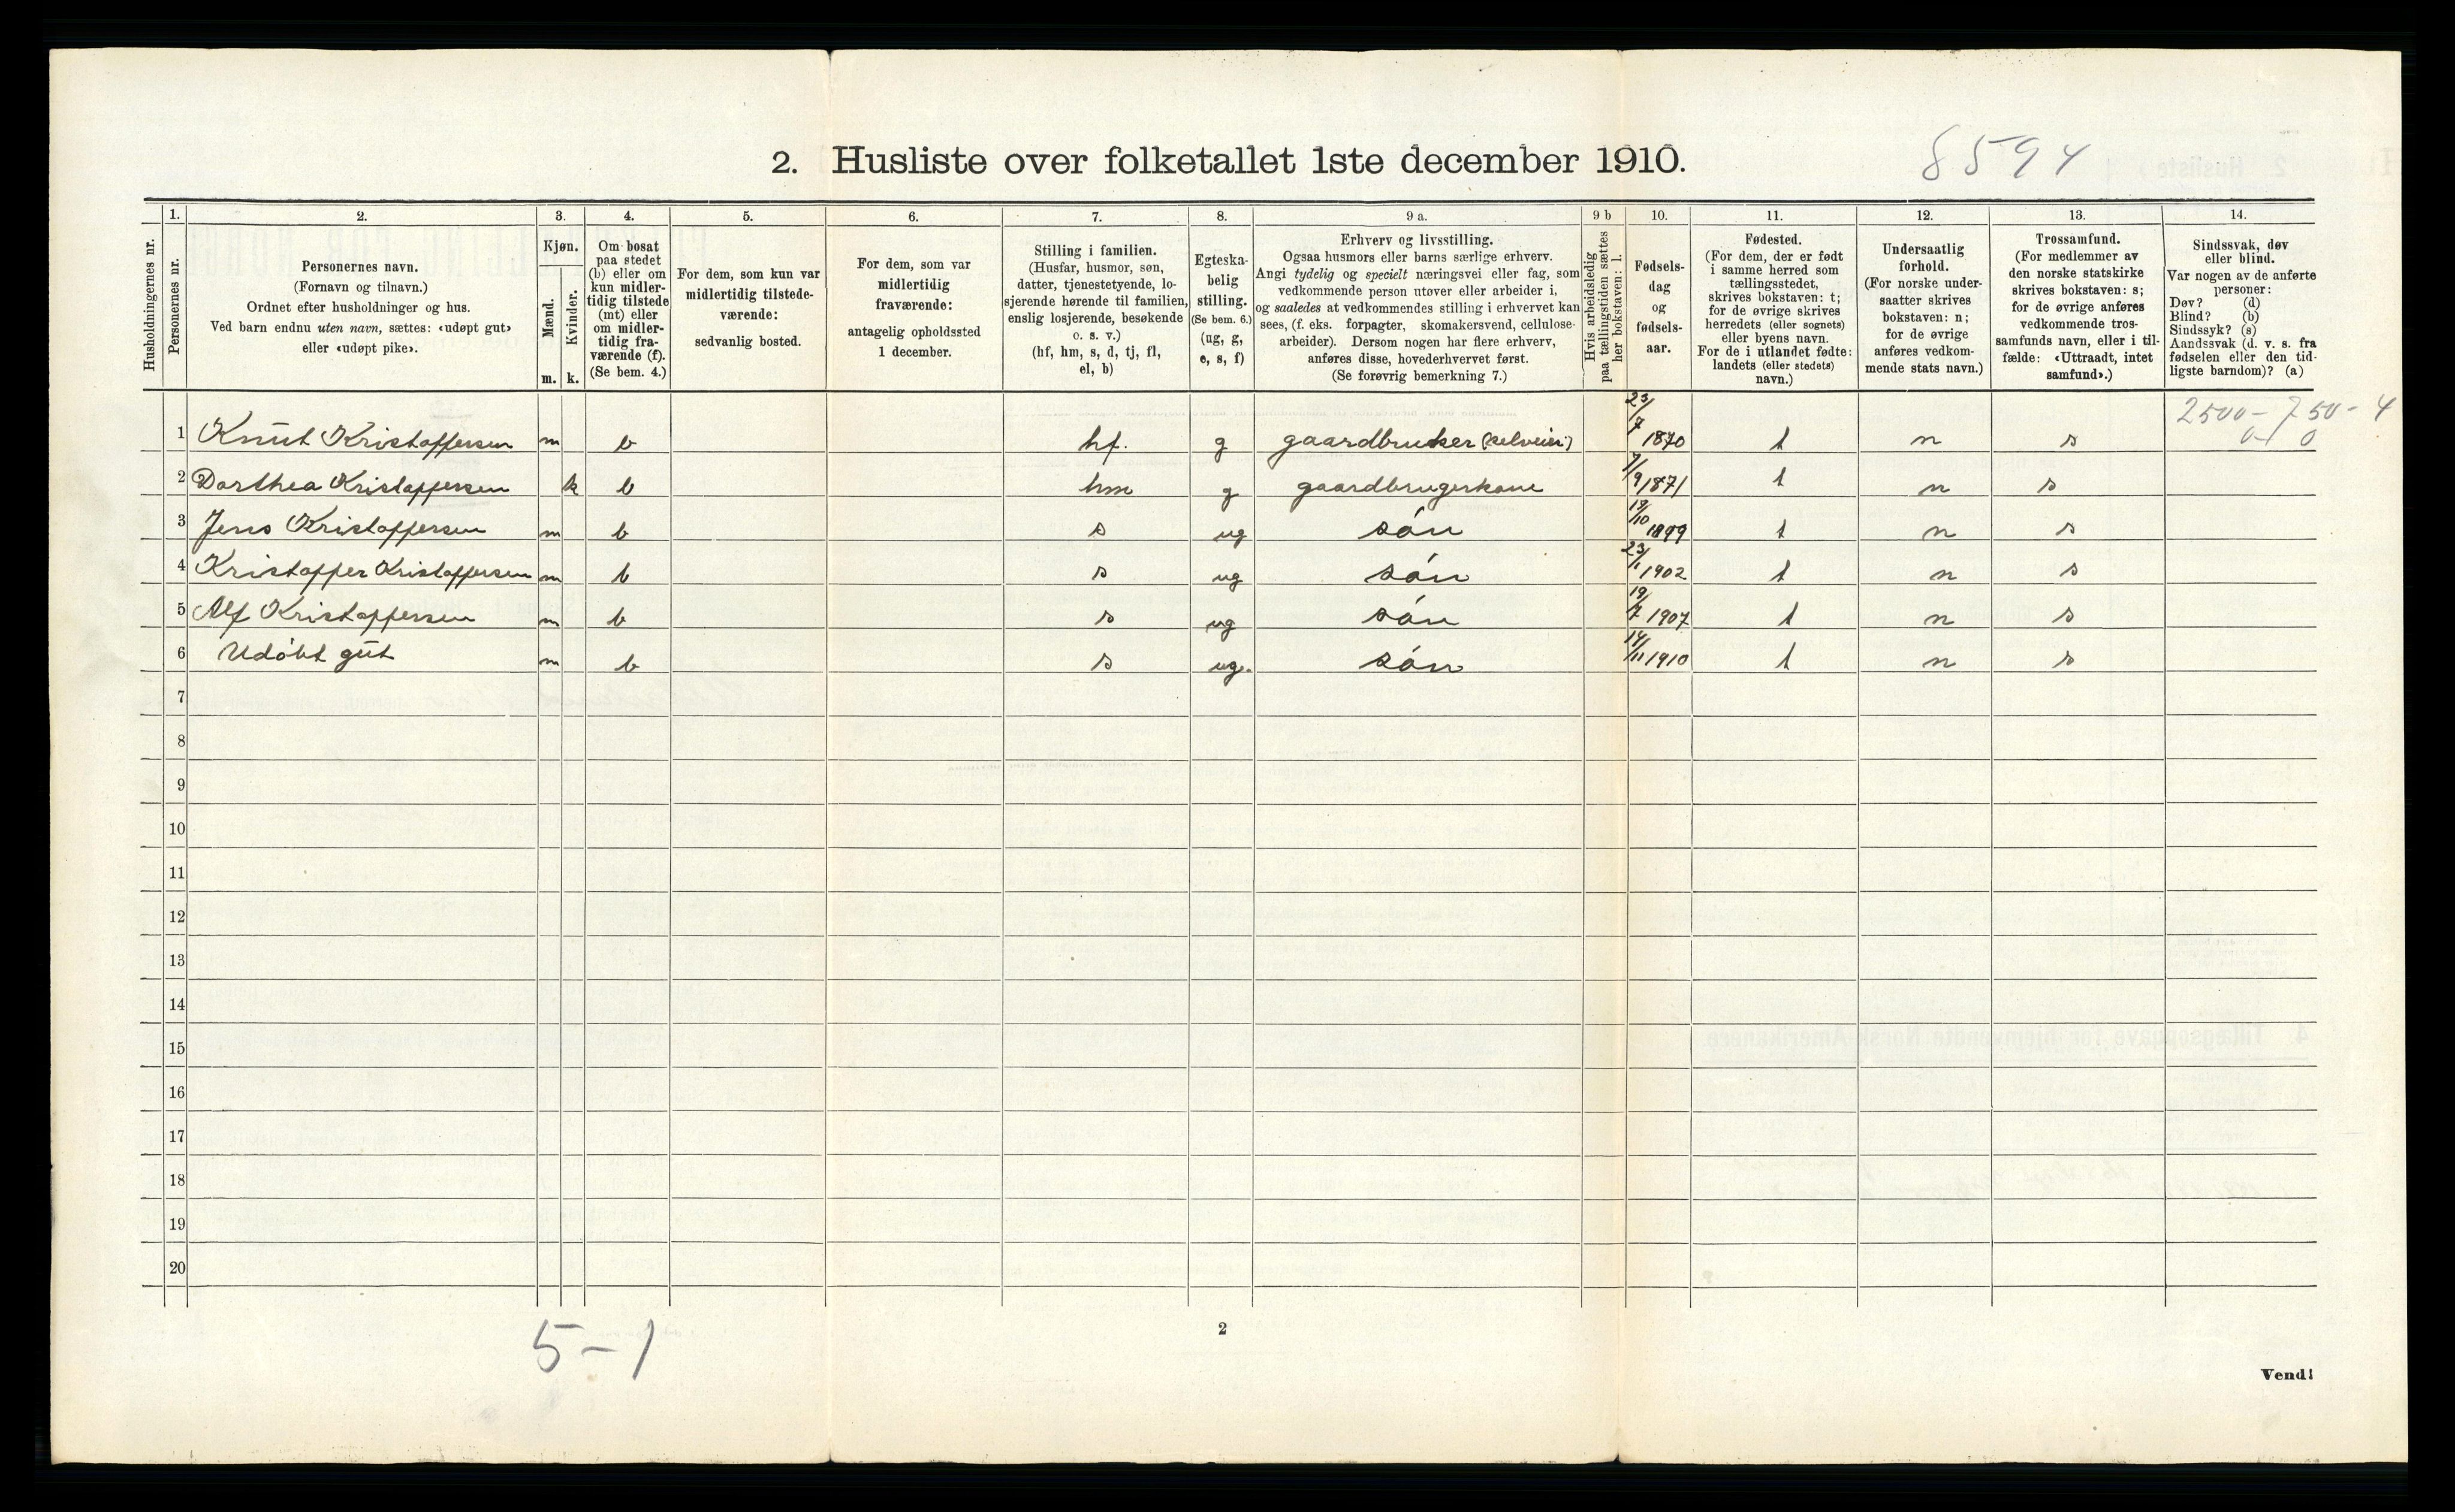 2. Husliste over folketallet 1ste december 1910.
8594
Husholdningernes nr.
1. Personernes nr.
2. Personernes navn.
(Fornavn og tilnavn.)
Ordnet efter husholdninger og hus.
Ved barn endnu uten navn, sættes: «udøpt gut»
eller «udøpt pike».
3. Kjøn.
Mænd. m.
Kvinder. k.
4. Om bosat
paa stedet
(b) eller om
kun midler-
tidig tilstede
(mt) eller
om midler-
tidig fra-
værende (f).
(Se bem. 4.)
5. For dem, som kun var
midlertidig tilstede-
værende:
sedvanlig bosted.
6. For dem, som var
midlertidig
fraværende:
antagelig opholdssted
1 december.
7. Stilling i familien.
(Husfar, husmor, søn,
datter, tjenestetyende, lo-
sjerende hørende til familien,
enslig losjerende, besøkende
o. s. v.)
(hf, hm, s, d, tj, fl,
el, b)
8. Egteska-
belig
stilling.
(Se bem. 6.)
(ug, g,
e, s, f)
9 a. Erhverv og livsstilling.
Ogsaa husmors eller barns særlige erhverv.
Angi tydelig og specielt næringsvei eller fag, som
vedkommende person utøver eller arbeider i,
og saaledes at vedkommendes stilling i erhvervet kan
sees, (f. eks. forpagter, skomakersvend, cellulose-
arbeider). Dersom nogen har flere erhverv,
anføres disse, hovederhvervet først.
(Se forøvrig bemerkning 7.)
9 b Hvis arbeidsledig
paa tællingstiden sættes
her bokstaven: l.
10. Fødsels-
dag
og
fødsels-
aar.
11. Fødested.
(For dem, der er født
i samme herred som
tællingsstedet,
skrives bokstaven: t;
for de øvrige skrives
herredets (eller sognets)
eller byens navn.
For de i utlandet fødte:
landets (eller stedets)
navn.)
12. Undersaatlig
forhold.
(For norske under-
saatter skrives
bokstaven: n;
for de øvrige
anføres vedkom-
mende stats navn.)
13. Trossamfund.
(For medlemmer av
den norske statskirke
skrives bokstaven: s;
for de øvrige anføres
vedkommende tros-
samfunds navn, eller i til-
fælde: «Uttraadt, intet
samfund».)
14. Sindssvak, døv
eller blind.
Var nogen av de anførte
personer:
Døv? (d)
Blind? (b)
Sindssyk? (s)
Aandssvak (d. v. s. fra
fødselen eller den tid-
ligste barndom)? (a)
2500 - 750 - 4
1 Knut Kristoffersen m b hf. g gaardbruker (selveier) 23/7 1870 t n s
2 Dorthea Kristoffersen k b hm g gaardbrugerkone 7/9 1871 t n s
3 Jens Kristoffersen m b s ug són 19/10 1899 t n s
4 Kristoffer Kristoffersen m b s ug són 23/1 1902 t n s
5 Alf Kristoffersen m b s ug són 19/7 1907 t n s
6 Udóbt gut m b s ug. són 14/11 1910 t n s
7
8
9
10
11
12
13
14
15
16
17
18
19
20
5-1
2
Vend!